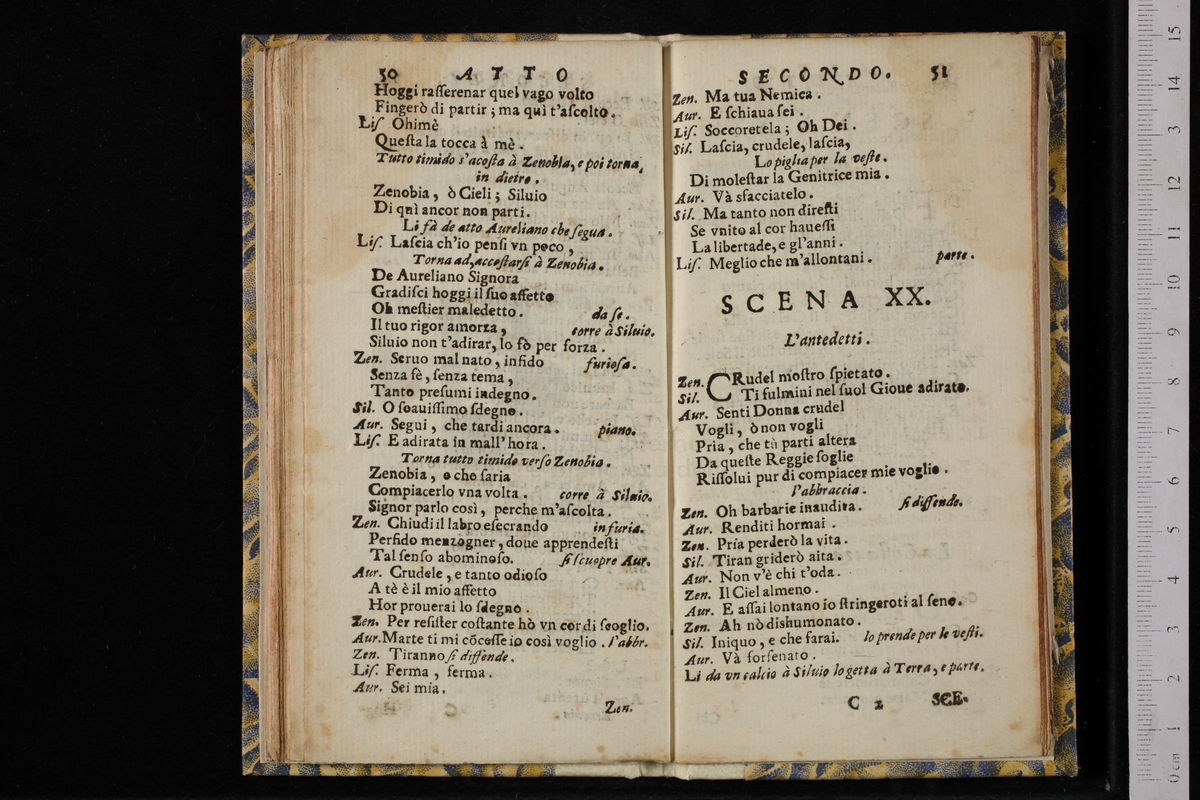 50 ATTO
Hoggi rasserenar quel vago volto
Fingerò di partir ; ma quì t'ascolto.
Lis. Ohimè
Questa la tocca à mè .
Tutto timido s'acosta à Zenobia, e poi torna
in dietro .
Zenobia , ò Cieli ; Siluio
Di quì ancor non parti .
Li fà de atto Aureliano che segua .
Lis. Lascia ch'io pensi vn poco ,
Torna ad accostarsi à Zenobia .
De Aureliano Signora
Gradisci hoggi il suo affetto
Oh mestier maledetto . da se .
Il tuo rigor amorza , corre à Siluio.
Siluio non t'adirar, lo fò per forza .
Zen. Seruo mal nato , infido furiosa .
Senza fè , senza tema ,
Tanto presumi indegno .
Sil. O soauissimo sdegno .
Aur. Segui , che tardi ancora . piano.
Lis. E adirata in mall'hora .
Torna tutto timido verso Zenobia .
Zenobia , e che saria
Compiacerlo vna volta . corre à Siluio.
Signor parlo così , perche m'ascolta .
Zen. Chiudi il labro esecrando in furia.
Perfido menzogner , doue apprendesti
Tal senso abominoso. si scuopre Aur.
Aur. Crudele , e tanto odioso
A tè è il mio affetto
Hor prouerai lo sdegno .
Zen. Per resister costante hò vn cor di scoglio.
Aur. Marte ti mi cōcesse io così voglio . l'abbr.
Zen. Tiranno si diffende .
Lis. Ferma , ferma .
Aur. Sei mia .
Zen.
SECONDO. 51
Zen. Ma tua Nemica .
Aur. E schiaua sei .
Lis. Soccoretela ; Oh Dei .
Sil. Lascia, crudele, lascia,
Lo piglia per la veste .
Di molestar la Genitrice mia .
Aur. Và sfacciatelo .
Sil. Ma tanto non diresti
Se vnito al cor hauessi
La libertade, e gl'anni .
Lis. Meglio che m'allontani . parte .
SCENA XX.
L'antedetti .
Zen. CRudel mostro spietato .
Sil. Ti fulmini nel suol Gioue adirato.
Aur. Senti Donna crudel
Vogli , ò non vogli
Pria , che tù parti altera
Da queste Reggie soglie
Rissolui pur di compiacer mie voglie .
l'abbraccia .
Zen. Oh barbarie inaudita . si diffende.
Aur. Renditi hormai .
Zen. Pria perderò la vita .
Sil. Tiran griderò aita .
Aur. Non v'è chi t'oda .
Zen. Il Ciel almeno .
Aur. E assai lontano io stringeroti al seno.
Zen. Ah nò dishumonato .
Sil. Iniquo , e che farai. lo prende per le vesti.
Aur. Và forsenato .
Li da vn calcio à Siluio lo getta à Terra, e parte.
C 2 SCE.